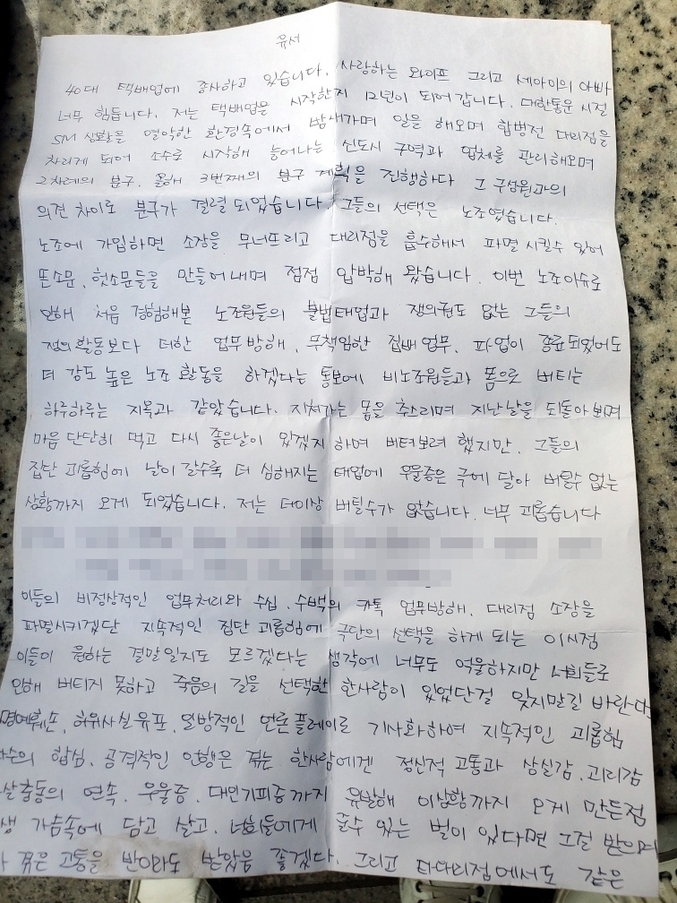 유서
40대 택배업에 종사하고 있습니다. 사랑하는 와이프 그리고 세아이의 아빠
너무 힘듭니다. 저는 택배업을 시작한지 12년이 되어 갑니다. 대한통운 시절
SM 생활을 열악한 환경속에서 밤새가며 일을 해오며 합병전 대리점을
차리게 되어 소수로 시작해 늘어나는 신도시 구역과 업체를 관리해오며
2차례의 분구. 올해 3번째의 분구 계획을 진행하다 그 구성원과의
의견 차이로 분구가 결렬 되었습니다 그들의 선택은 노조였습니다.
노조에 가입하면 소장을 무너뜨리고 대리점을 흡수해서 파멸 시킬수 있어
뜬소문, 헛소문들을 만들어 내며 점점 압박해 왔습니다. 이번 노조이슈로
인해 처음 경험해본 노조원들의 불법태업과 쟁의권도 없는 그들의
쟁의 활동보다 더한 업무방해, 무책임한 집배 업무, 파업이 종료되었어도
더 강도 높은 노조 활동을 하겠다는 통보에 비노조원들과 몸으로 버티는
하루하루는 지옥과 같았습니다. 지쳐가는 몸을 추스리며 지난날을 되돌아 보며
마음 단단히 먹고 다시 좋은날이 있겠지 하며 버텨보려 했지만, 그들의
집단 괴롭힘에 날이 갈수록 더 심해지는 태업에 우울증은 극에 달아 버틸수 없는
상황까지 오게 되었습니다. 저는 더이상 버틸수가 없습니다. 너무 괴롭습니다
이들의 비정상적인 업무처리와 수십, 수백의 카톡 업무방해, 대리점 소장을
파멸시키겠단 지속적인 집단 괴롭힘에 극단의 선택을 하게 되는 이시점
이들이 원하는 결말일지도 모르겠다는 생각에 너무도 억울하지만 너희들로
인해 버티지 못하고 죽음의 길을 선택한 한사람이 있었단걸 잊지말길 바란다
명예훼손, 허위사실유포, 일방적인 언론플레이로 기사화하여 지속적인 괴롭힘
다수의 합심, 공격적인 언행은 겪는 한사람에겐 정신적 고통과 상실감, 괴리감
살충동의 연속, 우울증, 대인기피증까지 유발해 이상황까지 오게 만든점
생 가슴속에 담고 살고, 너희들에게 줄수 있는 벌이 있다면 그걸 받으며
겪은 고통을 반이라도 받았음 좋겠다. 그리고 타대리점에서도 같은